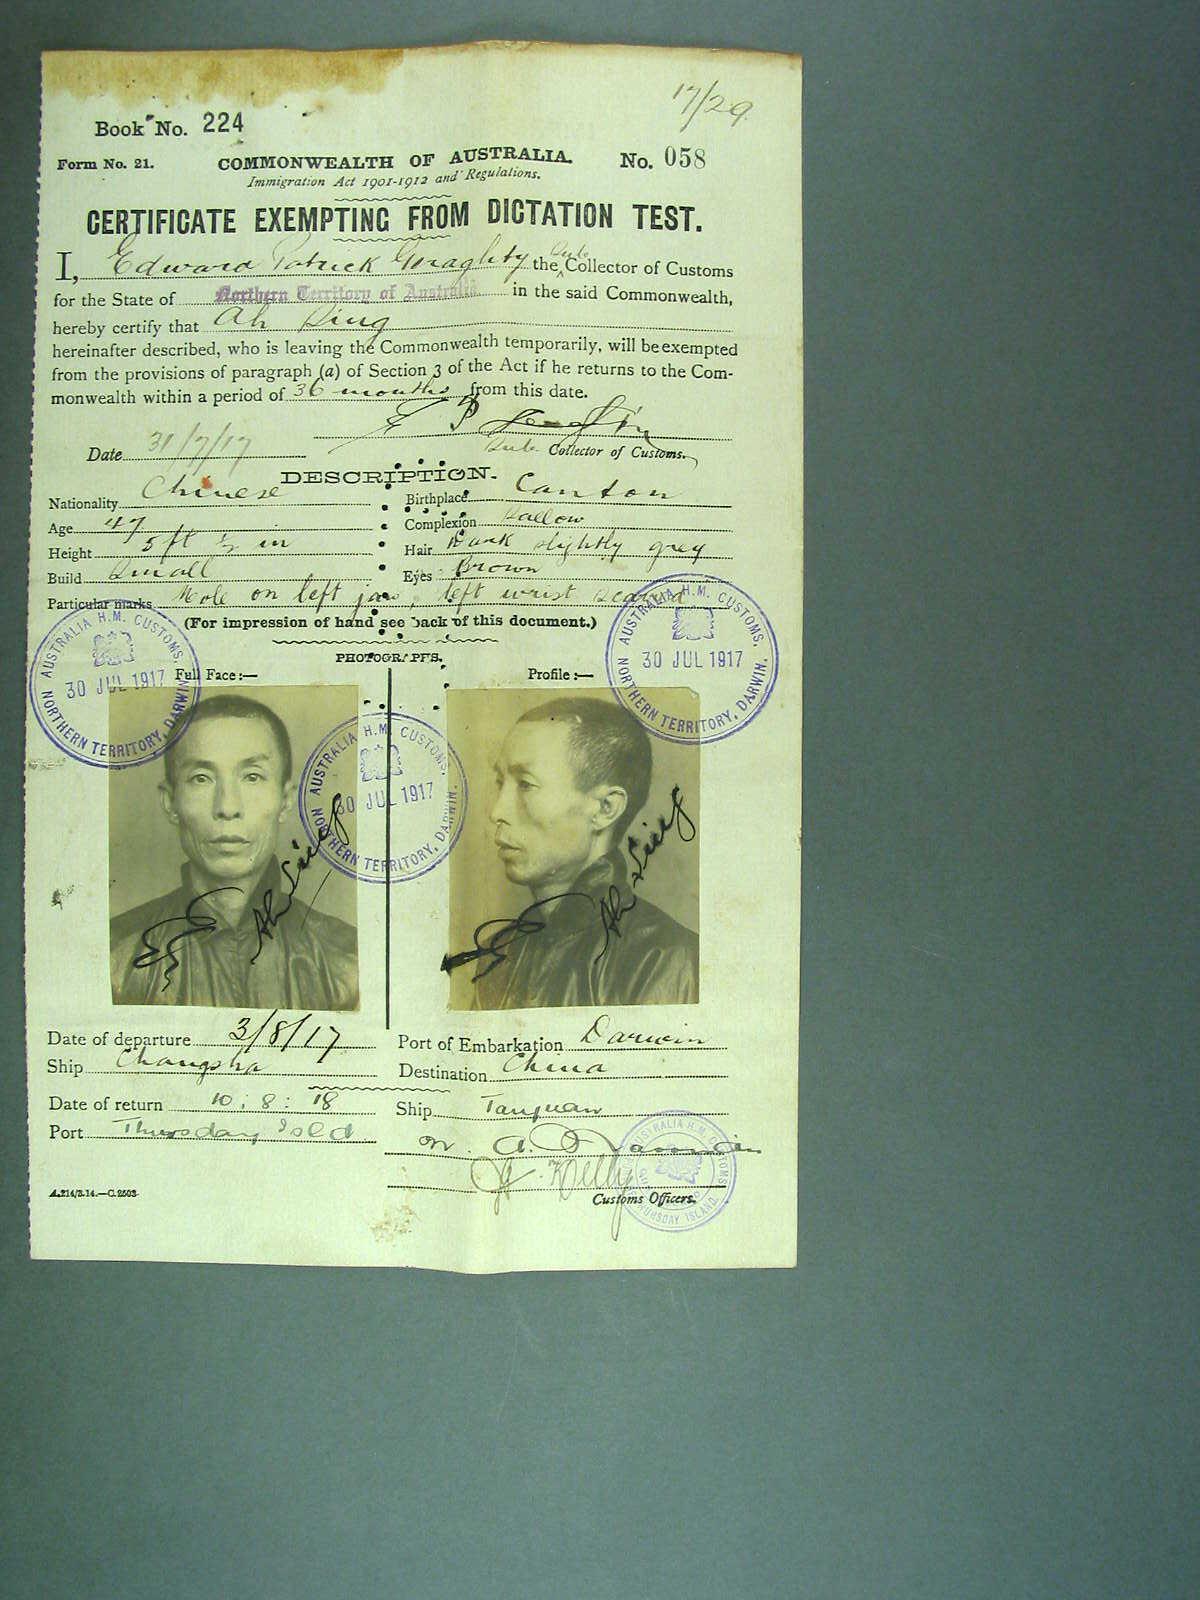 17/29
Book No. 224
Form No. 21. COMMONWEALTH OF AUSTRALIA. No. 058
Immigration Act 1901-1912 and Regulations.
CERTIFICATE EXEMPTING FROM DICTATION TEST.
I, Edward Patrick the Sub Collector of Customs
for the State of Northern Territory of Australia in the said Commonwealth,
hereby certify that Ah Ling
hereinafter described, who is leaving the Commonwealth temporarily, will be exempted
from the provisions of paragraph (a) of Section 3 of the Act if he returns to the Com-
monwealth within a period of 36 months from this date.
Date 31/7/17 Sub Collector of Customs.
DESCRIPTION.
Nationality Chinese Birthplace Canton
Age 47 Complexion Sallow
Height 5 ft ½ in Hair Dark slightly grey
Build Small Eyes Brown
Particular marks Mole on left jaw, left wrist scarred
(For impression of hand see back of this document.)
PHOTOGRAPHS.
Full Face :— Profile :—
AUSTRALIA H.M. CUSTOMS. 30 JUL 1917 NORTHERN TERRITORY, DARWIN.
AUSTRALIA H.M. CUSTOMS. 30 JUL 1917 NORTHERN TERRITORY, DARWIN.
AUSTRALIA H.M. CUSTOMS. 30 JUL 1917 NORTHERN TERRITORY, DARWIN.
Ah Ling Ah Ling
Date of departure 3/8/17 Port of Embarkation Darwin
Ship Changsha Destination China
Date of return 10 : 8 : 18 Ship Taiyuan
Port Thursday Isld
Kelly
Customs Officers.
AUSTRALIA H.M. CUSTOMS THURSDAY ISLAND.
A.214/3.14.—C.2503.